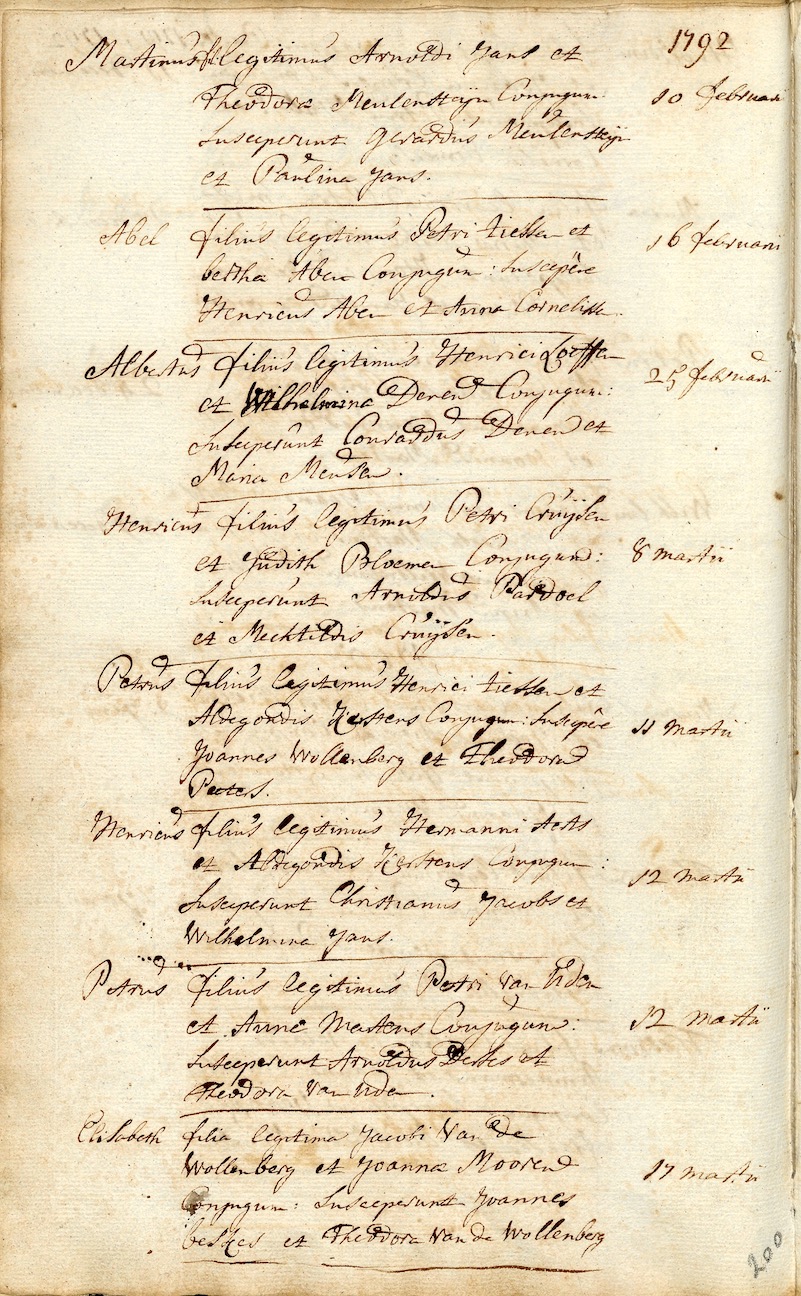 1792
Martinus fil legitimus Arnoldi Jans et
Theodoræ Meulensteijn Conjugum: 10 februarii
Susceperunt Gerardus Meulensteijn
et Paulina Jans.
Abel filius legitimus Petri tiessen et 16 februarii
bertha Aben Conjugum: Suscepêre
Henricus Aben et Anna Cornelissen.
Albertus filius legitimus Henrici Loeffen
et Wilhelmina Deren Conjugum: 25 februarii
Susceperunt Conraddus Deren et
Maria Meusen.
Henricus filius legitimus Petri Cruijsen
et Judith Bloemen Conjugum: 8 martii
Susceperunt Arnoldus Pardoel
et Mechtildis Cruijsen.
Petrus filius legitimus Henrici tiessen et
Aldegondis Kerstens Conjugum: Suscepêre 11 Martii
Joannes Wollenberg et Theodora
Peeters.
Henricus filius legitimus Hermanni
et Aldegondis Kerstens Conjugum: 12 martii
Susceperunt Christianus Jacobs et
Wilhelmina Jans.
Petrus filius legitimus Petri Van Uden
et Anne Martens Conjugum: 12 martii
Susceperunt Arnoldus et
Theodora Van Uden.
Elisabeth filia legitima Jacobi Van de
Wollenberg et Joannæ Mooren 17 martii
Conjugum: Susceperunt Joannes
et Theodora Van de Wollenberg
200